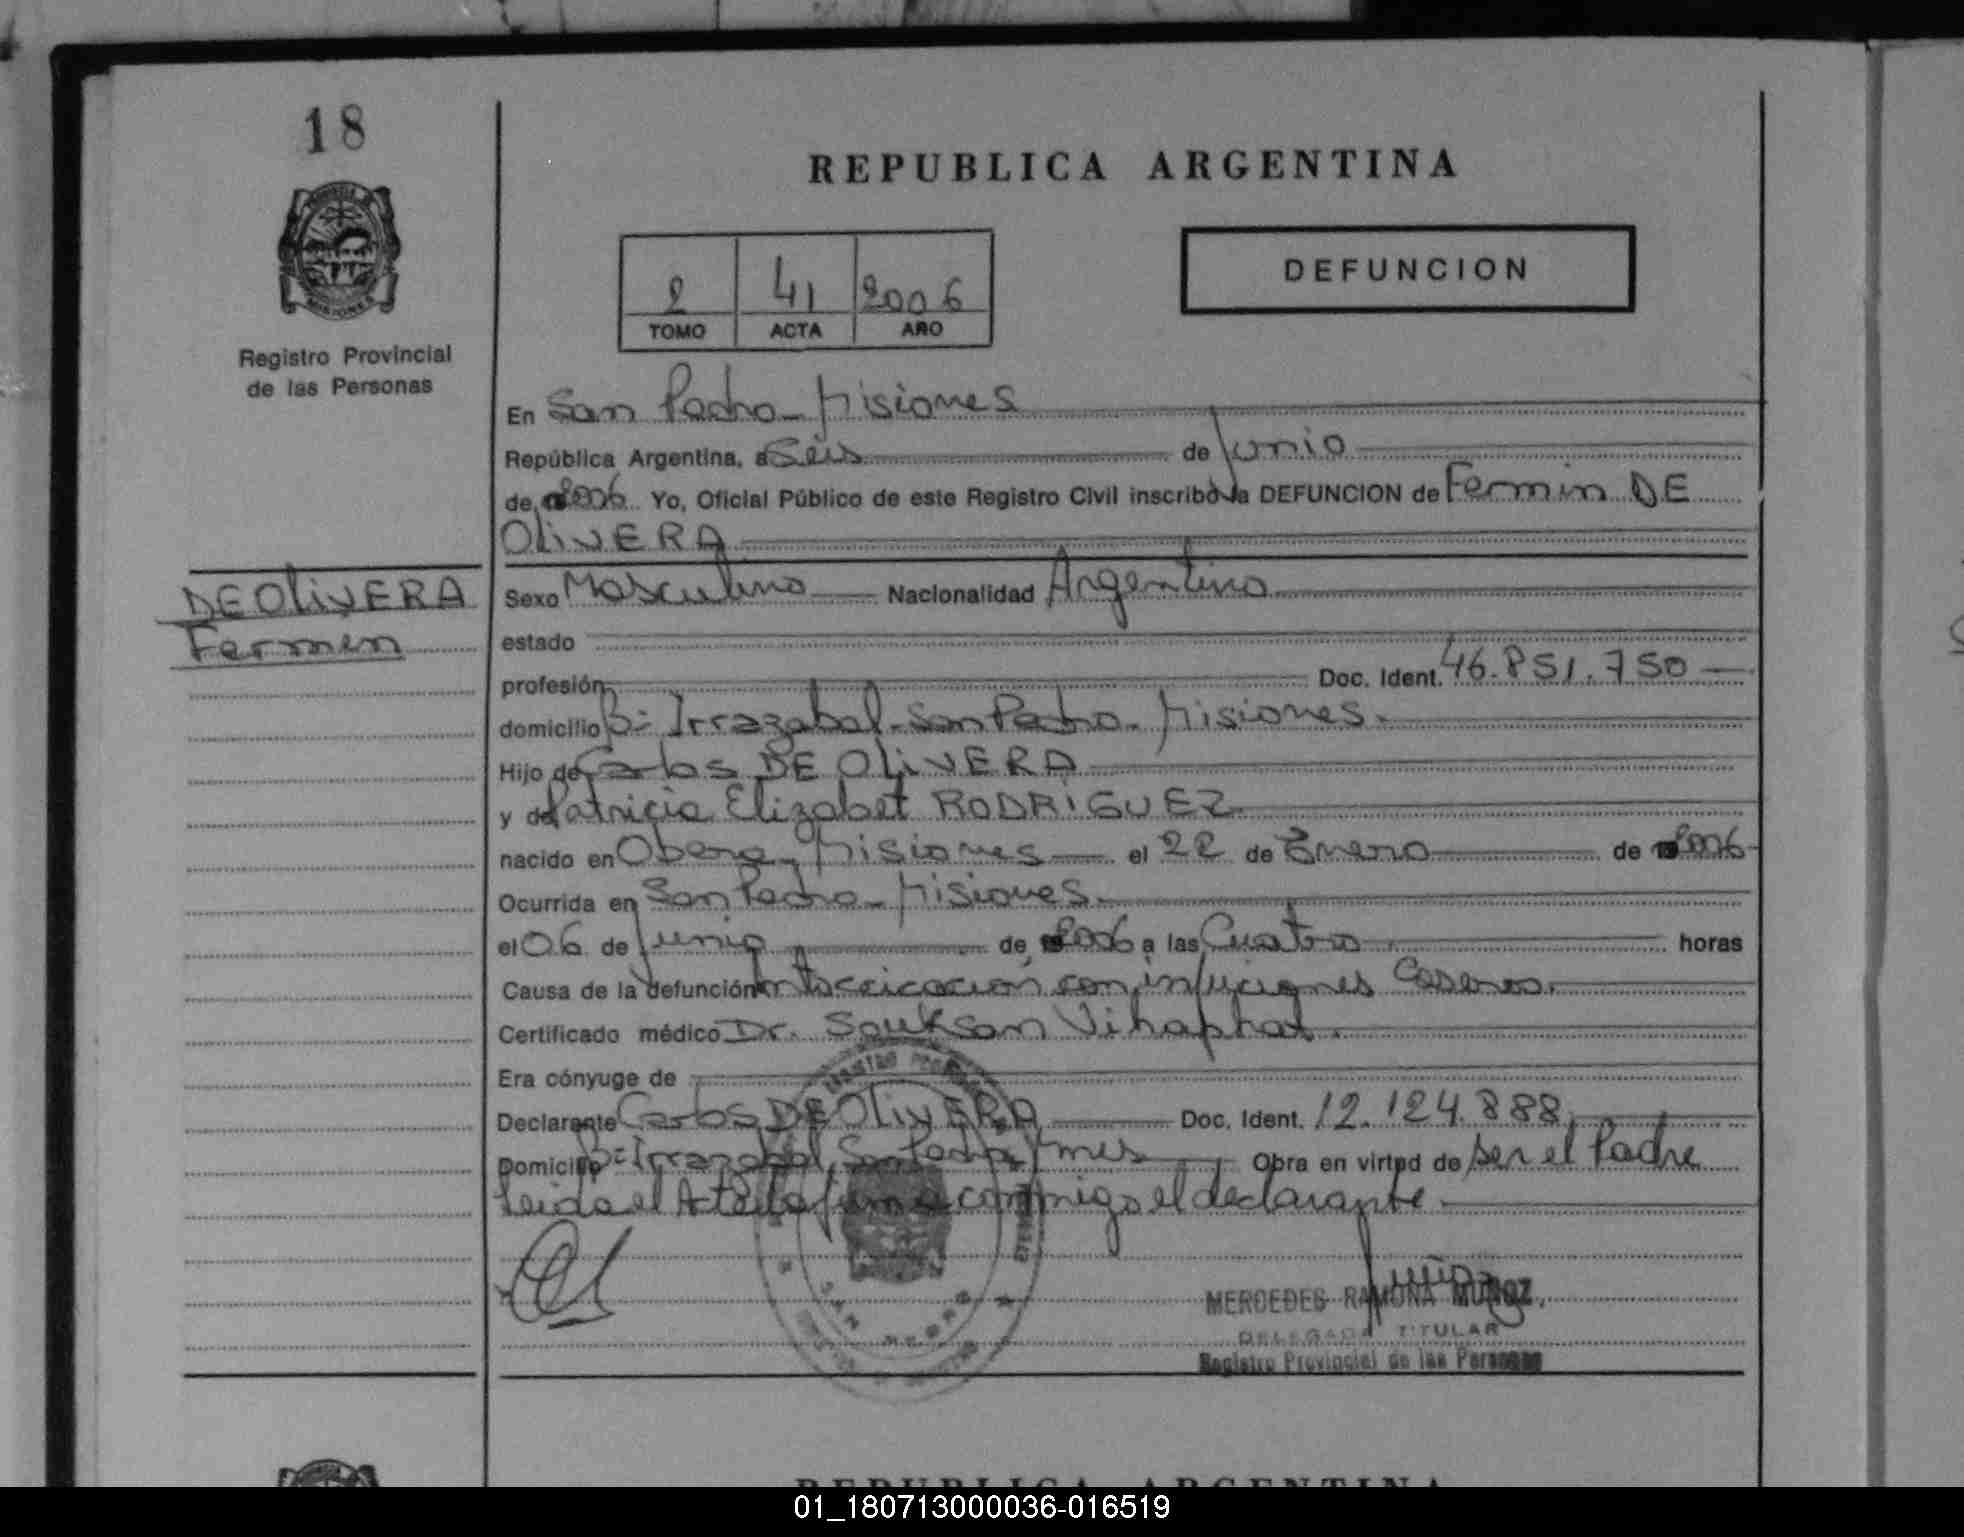 18
REPUBLICA ARGENTINA
DEFUNCION
2 41 2006
TOMO ACTA AÑO
Registro Provincial
de las Personas
En San Pedro - Misiones
República Argentina, a Seis de Junio
de 2006 Yo, Oficial Público de este Registro Civil inscribo la DEFUNCION de Fermin DE
OliVERA
DE OliVERA
Fermen
Sexo Masculino Nacionalidad Argentino
estado
profesión Doc. Ident. 46.851.750
domicilio B= Irrazabal - San Pedro - Misiones.
Hijo de Carlos DE OliVERA
y de Patricia Elizabet RODRIGUEZ
nacido en Obera - Misiones el 22 de Enero de 2006
Ocurrida en San Pedro - Misiones.
el 06 de Junio de 2006 a las Cuatro horas
Causa de la defunción con Caseros.
Certificado médico Dr. Souksan Vihaphat.
Era cónyuge de
Declarante Carlos DE OliVERA Doc. Ident. 12.124.888
Domicilio B= Irrazabal San Pedro Mnes Obra en virtud de ser el Padre
Leida el Acta la firma conmigo el declarante
MERCEDES RAMONA MUÑOZ
DELEGADA TITULAR
Registro Provincial de las Personas
SAN PEDRO
REPUBLICA ARGENTINA
01_180713000036-016519